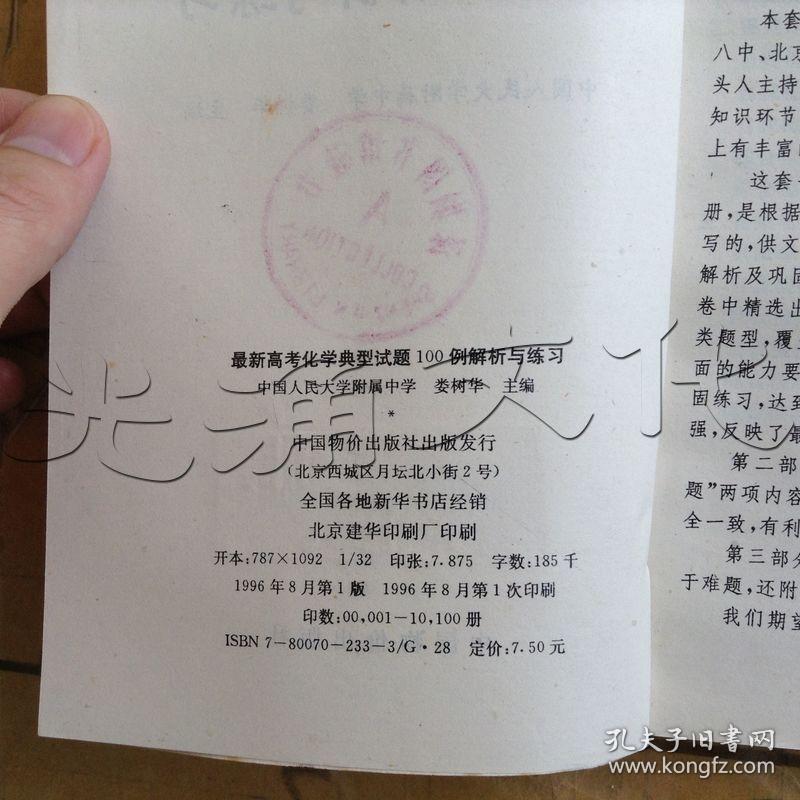 最新高考化学典型试题100例解析与练习
中国人民大学附属中学 娄树华 主编
*
中国物价出版社出版发行
(北京西城区月坛北小街2号)
全国各地新华书店经销
北京建华印刷厂印刷
开本:787×1092 1/32 印张:7.875 字数:185千
1996年8月第1版 1996年8月第1次印刷
印数:00,001-10,100册
ISBN 7-80070-233-3/G·28 定价:7.50元
本套
八中、北京
头人主持
知识环节
上有丰富
这套
册,是根据
写的,供文
解析及巩固
卷中精选出
类题型,覆
面的能力要
固练习,达到
强,反映了最
第二部
题”两项内容
全一致,有利
第三部分
于难题,还附
我们期望
光浦文化
孔夫子旧书网
www.kongfz.com